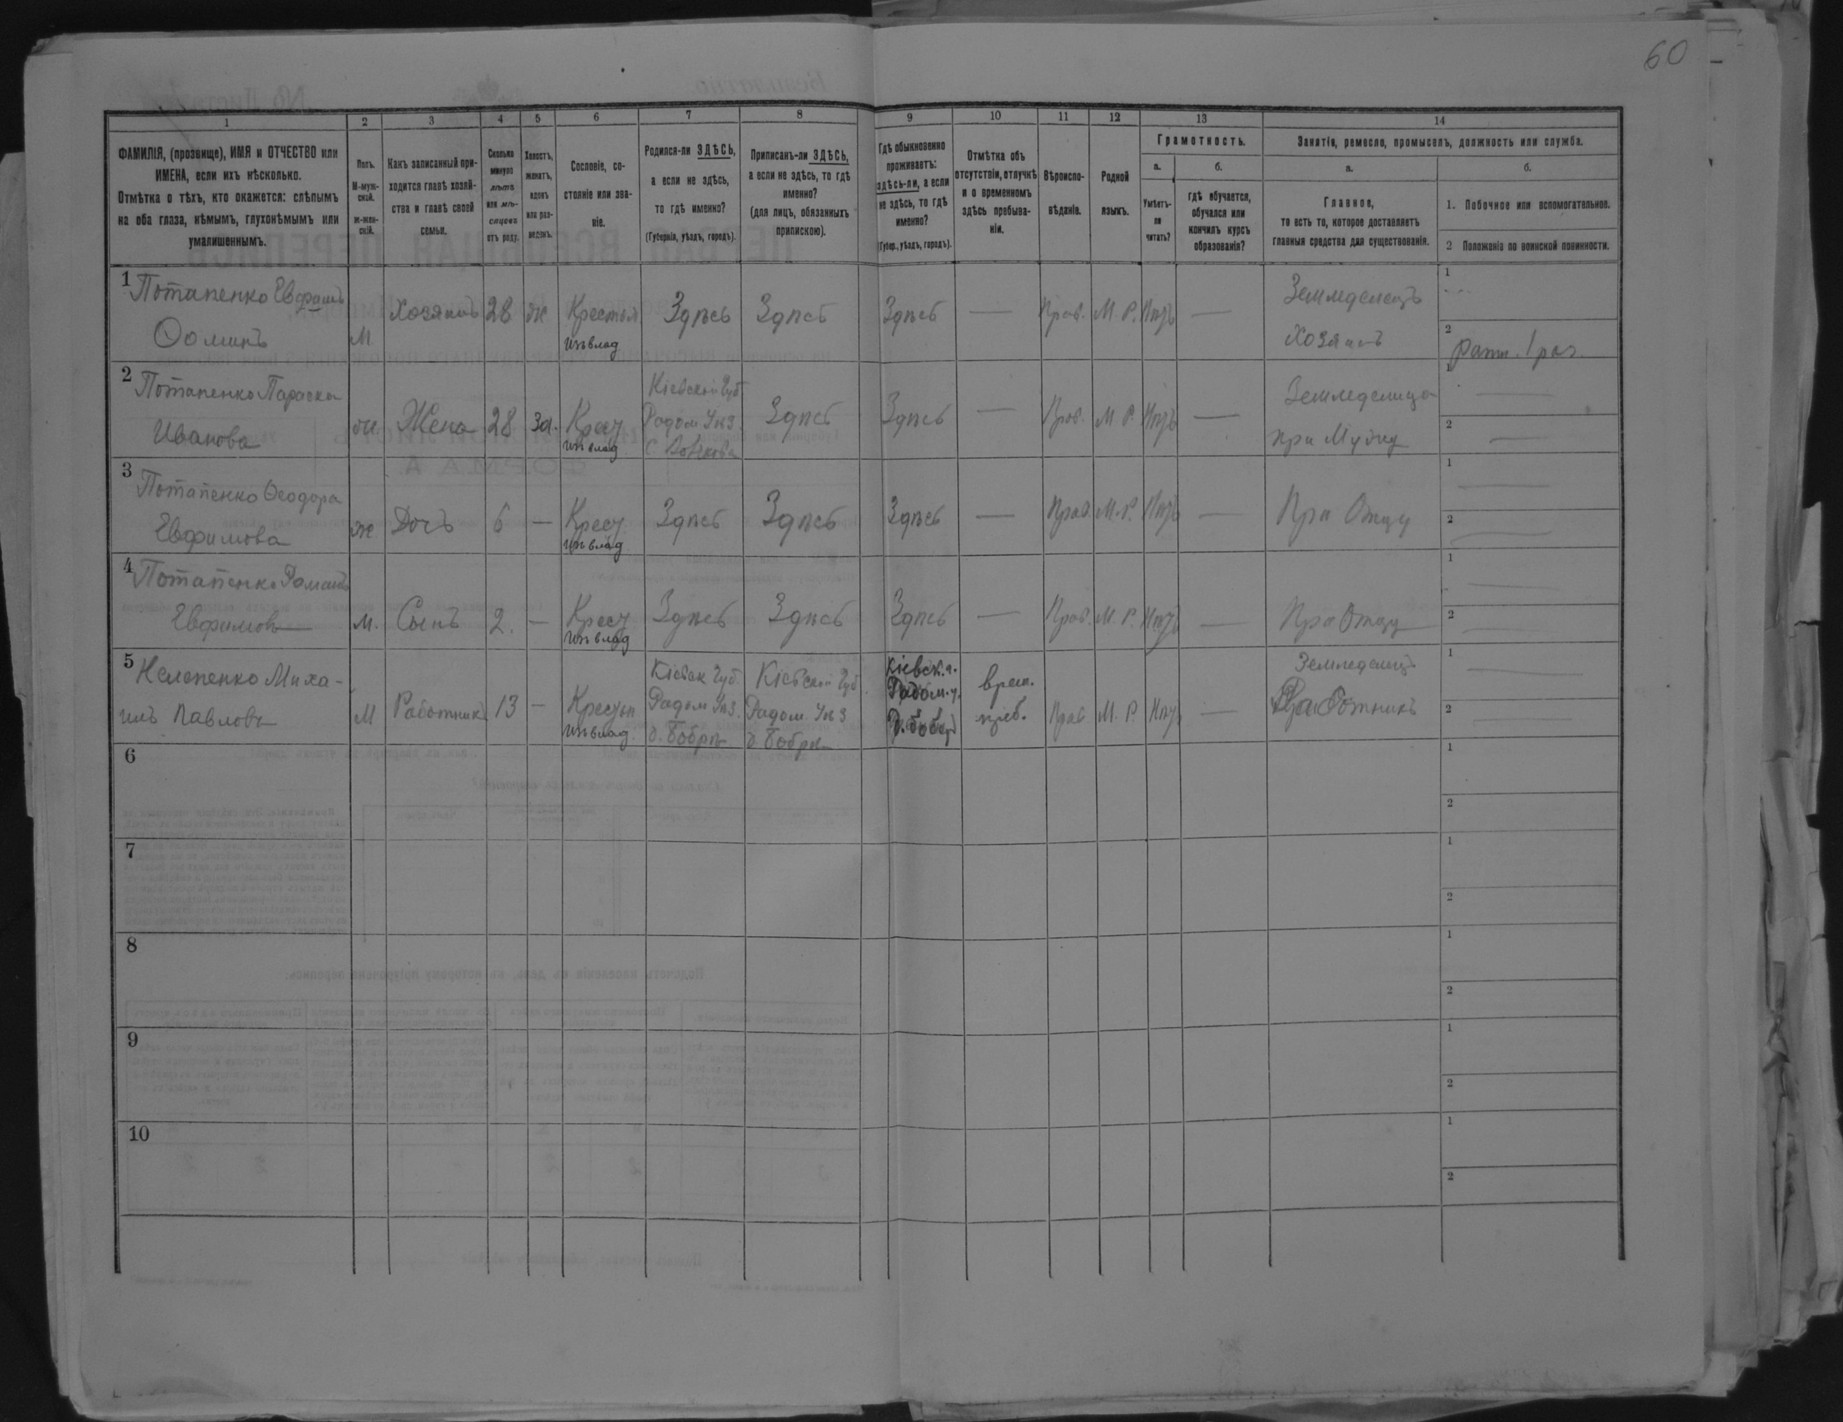 60
1 2 3 4 5 6 7 8 9 10 11 12 13 14
ФАМИЛІЯ, (прозвище), ИМЯ и ОТЧЕСТВО или
ИМЕНА, если ихъ нѣсколько.
Отмѣтка о тѣхъ, кто окажется: слѣпымъ
на оба глаза, нѣмымъ, глухонѣмымъ или
умалишеннымъ.
Полъ.
М-муж-
ской.
ж-жен-
скій.
Какъ записанный при-
ходится главѣ хозяй-
ства и главѣ своей
семьи.
Сколько
минуло
лѣтъ
или мѣ-
сяцевъ
отъ роду.
Холостъ,
женатъ,
вдовъ
или раз-
веденъ.
Сословіе, со-
стояніе или зва-
ніе.
Родился-ли ЗДѢСЬ,
а если не здѣсь,
то гдѣ именно?
(Губернія, уѣздъ, городъ).
Приписанъ-ли ЗДѢСЬ,
а если не здѣсь, то гдѣ
именно?
(для лицъ, обязанныхъ
припискою).
Гдѣ обыкновенно
проживаетъ:
здѣсь-ли, а если
не здѣсь, то гдѣ
именно?
(Губер., уѣздъ, городъ).
Отмѣтка объ
отсутствіи, отлучкѣ
и о временномъ
здѣсь пребыва-
ніи.
Вѣроиспо-
вѣданіе.
Родной
языкъ.
Грамотность.
а.
Умѣетъ-
ли
читать?
б.
гдѣ обучается,
обучался или
кончилъ курсъ
образованія?
Занятія, ремесло, промыселъ, должность или служба.
а.
Главное,
то есть то, которое доставляетъ
главныя средства для существованія.
б.
1. Побочное или вспомогательное.
2 Положеніе по воинской повинности.
1 Потапенко
Ѳоминъ М Хозяинъ 28 ж Крестья Здѣсь Здѣсь Здѣсь — Прав. М. Р. Нѣтъ — Земледелецъ 1
изъ влад Хозяинъ 2 Ратн. 1 раз.
2 Потапенко Параска Кіевской Губ Земледелица 1 —
Иванова ж. Жена 28 за. Крест Радом Уѣз Здѣсь Здѣсь — Прав. М Р. Нѣтъ — при Мужу 2 —
изъ влад
3 Потапенко Ѳеодора 1 —
Евфимова ж Дочь 6 — Крест Здѣсь Здѣсь Здѣсь — Прав М.Р. Нѣтъ — При Отцу 2 —
изъ влад
4 Потапенко Романъ 1 —
Евфимовъ м. Сынъ 2. — Крест Здѣсь Здѣсь Здѣсь — Прав. М. Р. Нѣтъ — При Отцу 2 —
изъ влад
5 Нелепенко Миха- Кіевск Губ. Кіевской Губ. Кіевск. г. врем. Земледелецъ 1 —
илъ Павловъ М Работникъ 13 — Крестьн Радом Уѣз. Радом Уѣз Радом. у. преб. Прав М. Р. Нѣтъ — Работникъ 2 —
изъ влад. д. Бобръ д. Бобръ
6 1
2
7 1
2
8 1
2
9 1
2
10 1
2